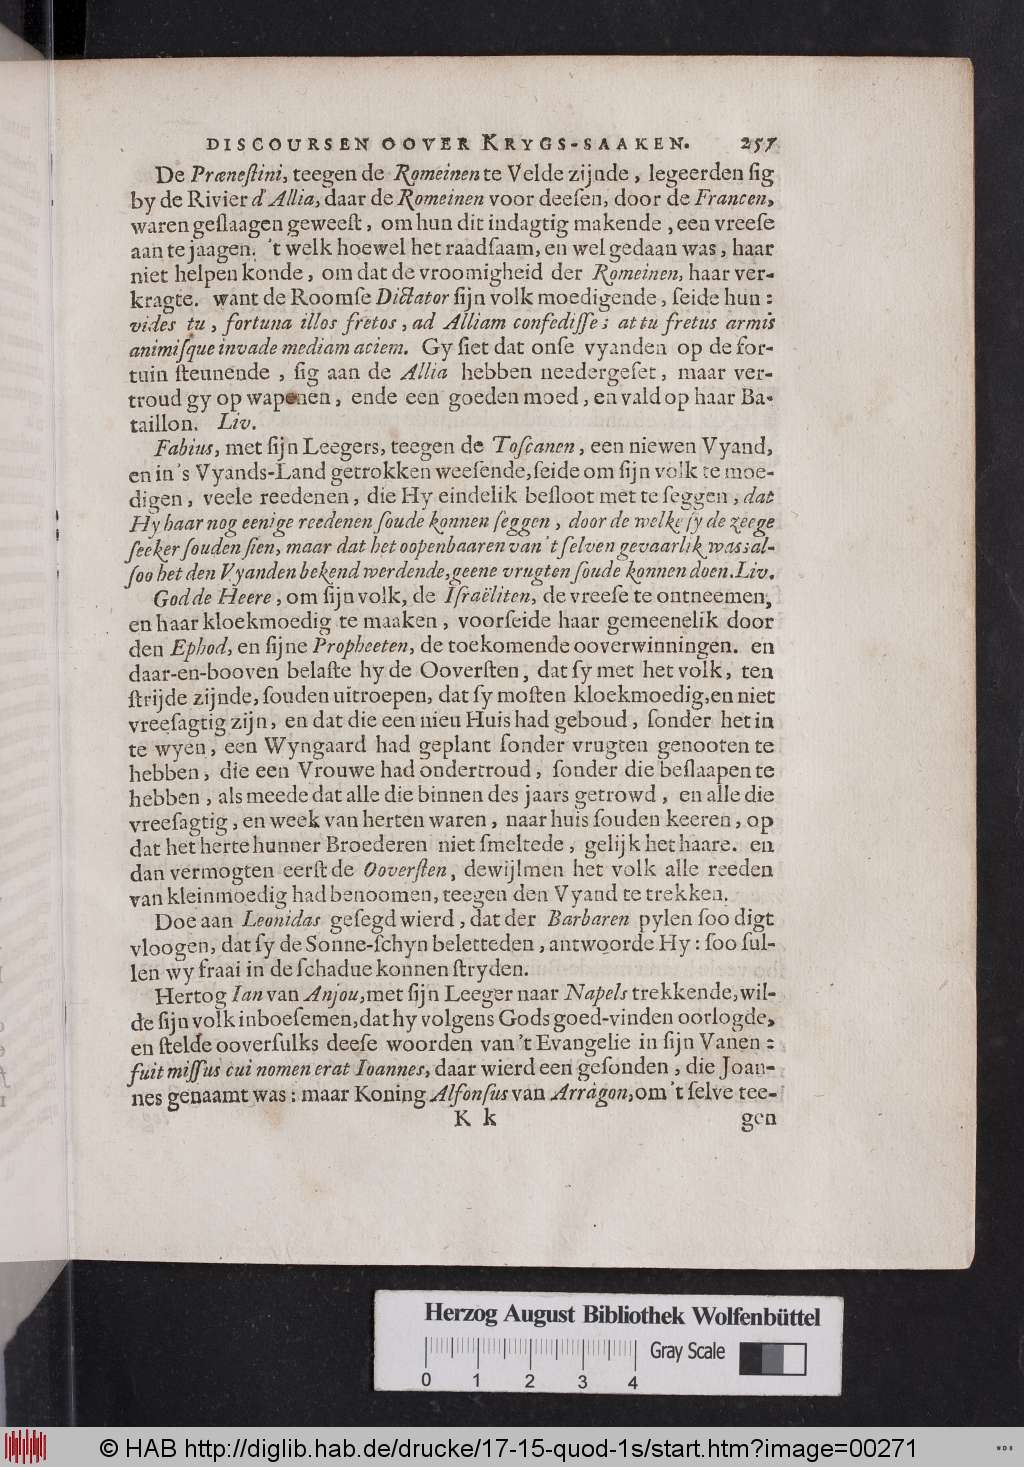 DISCOURSEN OOVER KRYGS-SAAKEN. 257
De Præneſtini, teegen de Romeinen te Velde zijnde, legeerden ſig
by de Rivier d'Allia, daar de Romeinen voor deeſen, door de Francen,
waren geſlaagen geweeſt, om hun dit indagtig makende, een vreeſe
aan te jaagen. 't welk hoewel het raadſaam, en wel gedaan was, haar
niet helpen konde, om dat de vroomigheid der Romeinen, haar ver-
kragte. want de Roomſe Dictator ſijn volk moedigende, ſeide hun:
vides tu, fortuna illos fretos, ad Alliam confediſſe; at tu fretus armis
animiſque invade mediam aciem. Gy ſiet dat onſe vyanden op de for-
tuin ſteunende, ſig aan de Allia hebben needergeſet, maar ver-
troud gy op wapenen, ende een goeden moed, en vald op haar Ba-
taillon. Liv.
Fabius, met ſijn Leegers, teegen de Toſcanen, een niewen Vyand,
en in 's Vyands-Land getrokken weeſende, ſeide om ſijn volk te moe-
digen, veele reedenen, die Hy eindelik beſloot met te ſeggen, dat
Hy haar nog eenige reedenen ſoude konnen ſeggen, door de welke ſy de zeege
ſeeker ſouden ſien, maar dat het oopenbaaren van 't ſelven gevaarlik was; al-
ſoo het den Vyanden bekend werdende, geene vrugten ſoude konnen doen. Liv.
God de Heere, om ſijn volk, de Iſraëliten, de vreeſe te ontneemen,
en haar kloekmoedig te maaken, voorſeide haar gemeenelik door
den Ephod, en ſijne Propheeten, de toekomende ooverwinningen. en
daar-en-booven belaſte hy de Ooverſten, dat ſy met het volk, ten
ſtrijde zijnde, ſouden uitroepen, dat ſy moſten kloekmoedig, en niet
vreeſagtig zijn, en dat die een nieu Huis had geboud, ſonder het in
te wyen, een Wyngaard had geplant ſonder vrugten genooten te
hebben, die een Vrouwe had ondertroud, ſonder die beſlaapen te
hebben, als meede dat alle die binnen des jaars getrowd, en alle die
vreeſagtig, en week van herten waren, naar huis ſouden keeren, op
dat het herte hunner Broederen niet ſmeltede, gelijk het haare. en
dan vermogten eerſt de Ooverſten, dewijlmen het volk alle reeden
van kleinmoedig had benoomen, teegen den Vyand te trekken.
Doe aan Leonidas geſegd wierd, dat der Barbaren pylen ſoo digt
vloogen, dat ſy de Sonne-ſchyn beletteden, antwoorde Hy: ſoo ſul-
len wy fraai in de ſchadue konnen ſtryden.
Hertog Ian van Anjou, met ſijn Leeger naar Napels trekkende, wil-
de ſijn volk inboeſemen, dat hy volgens Gods goed-vinden oorlogde,
en ſtelde ooverſulks deeſe woorden van 't Evangelie in ſijn Vanen:
fuit miſſus cui nomen erat Ioannes, daar wierd een geſonden, die Joan-
nes genaamt was: maar Koning Alfonſus van Arragon, om 't ſelve tee-
K k gen
Herzog August Bibliothek Wolfenbüttel
Gray Scale
0 1 2 3 4
© HAB http://diglib.hab.de/drucke/17-15-quod-1s/start.htm?image=00271